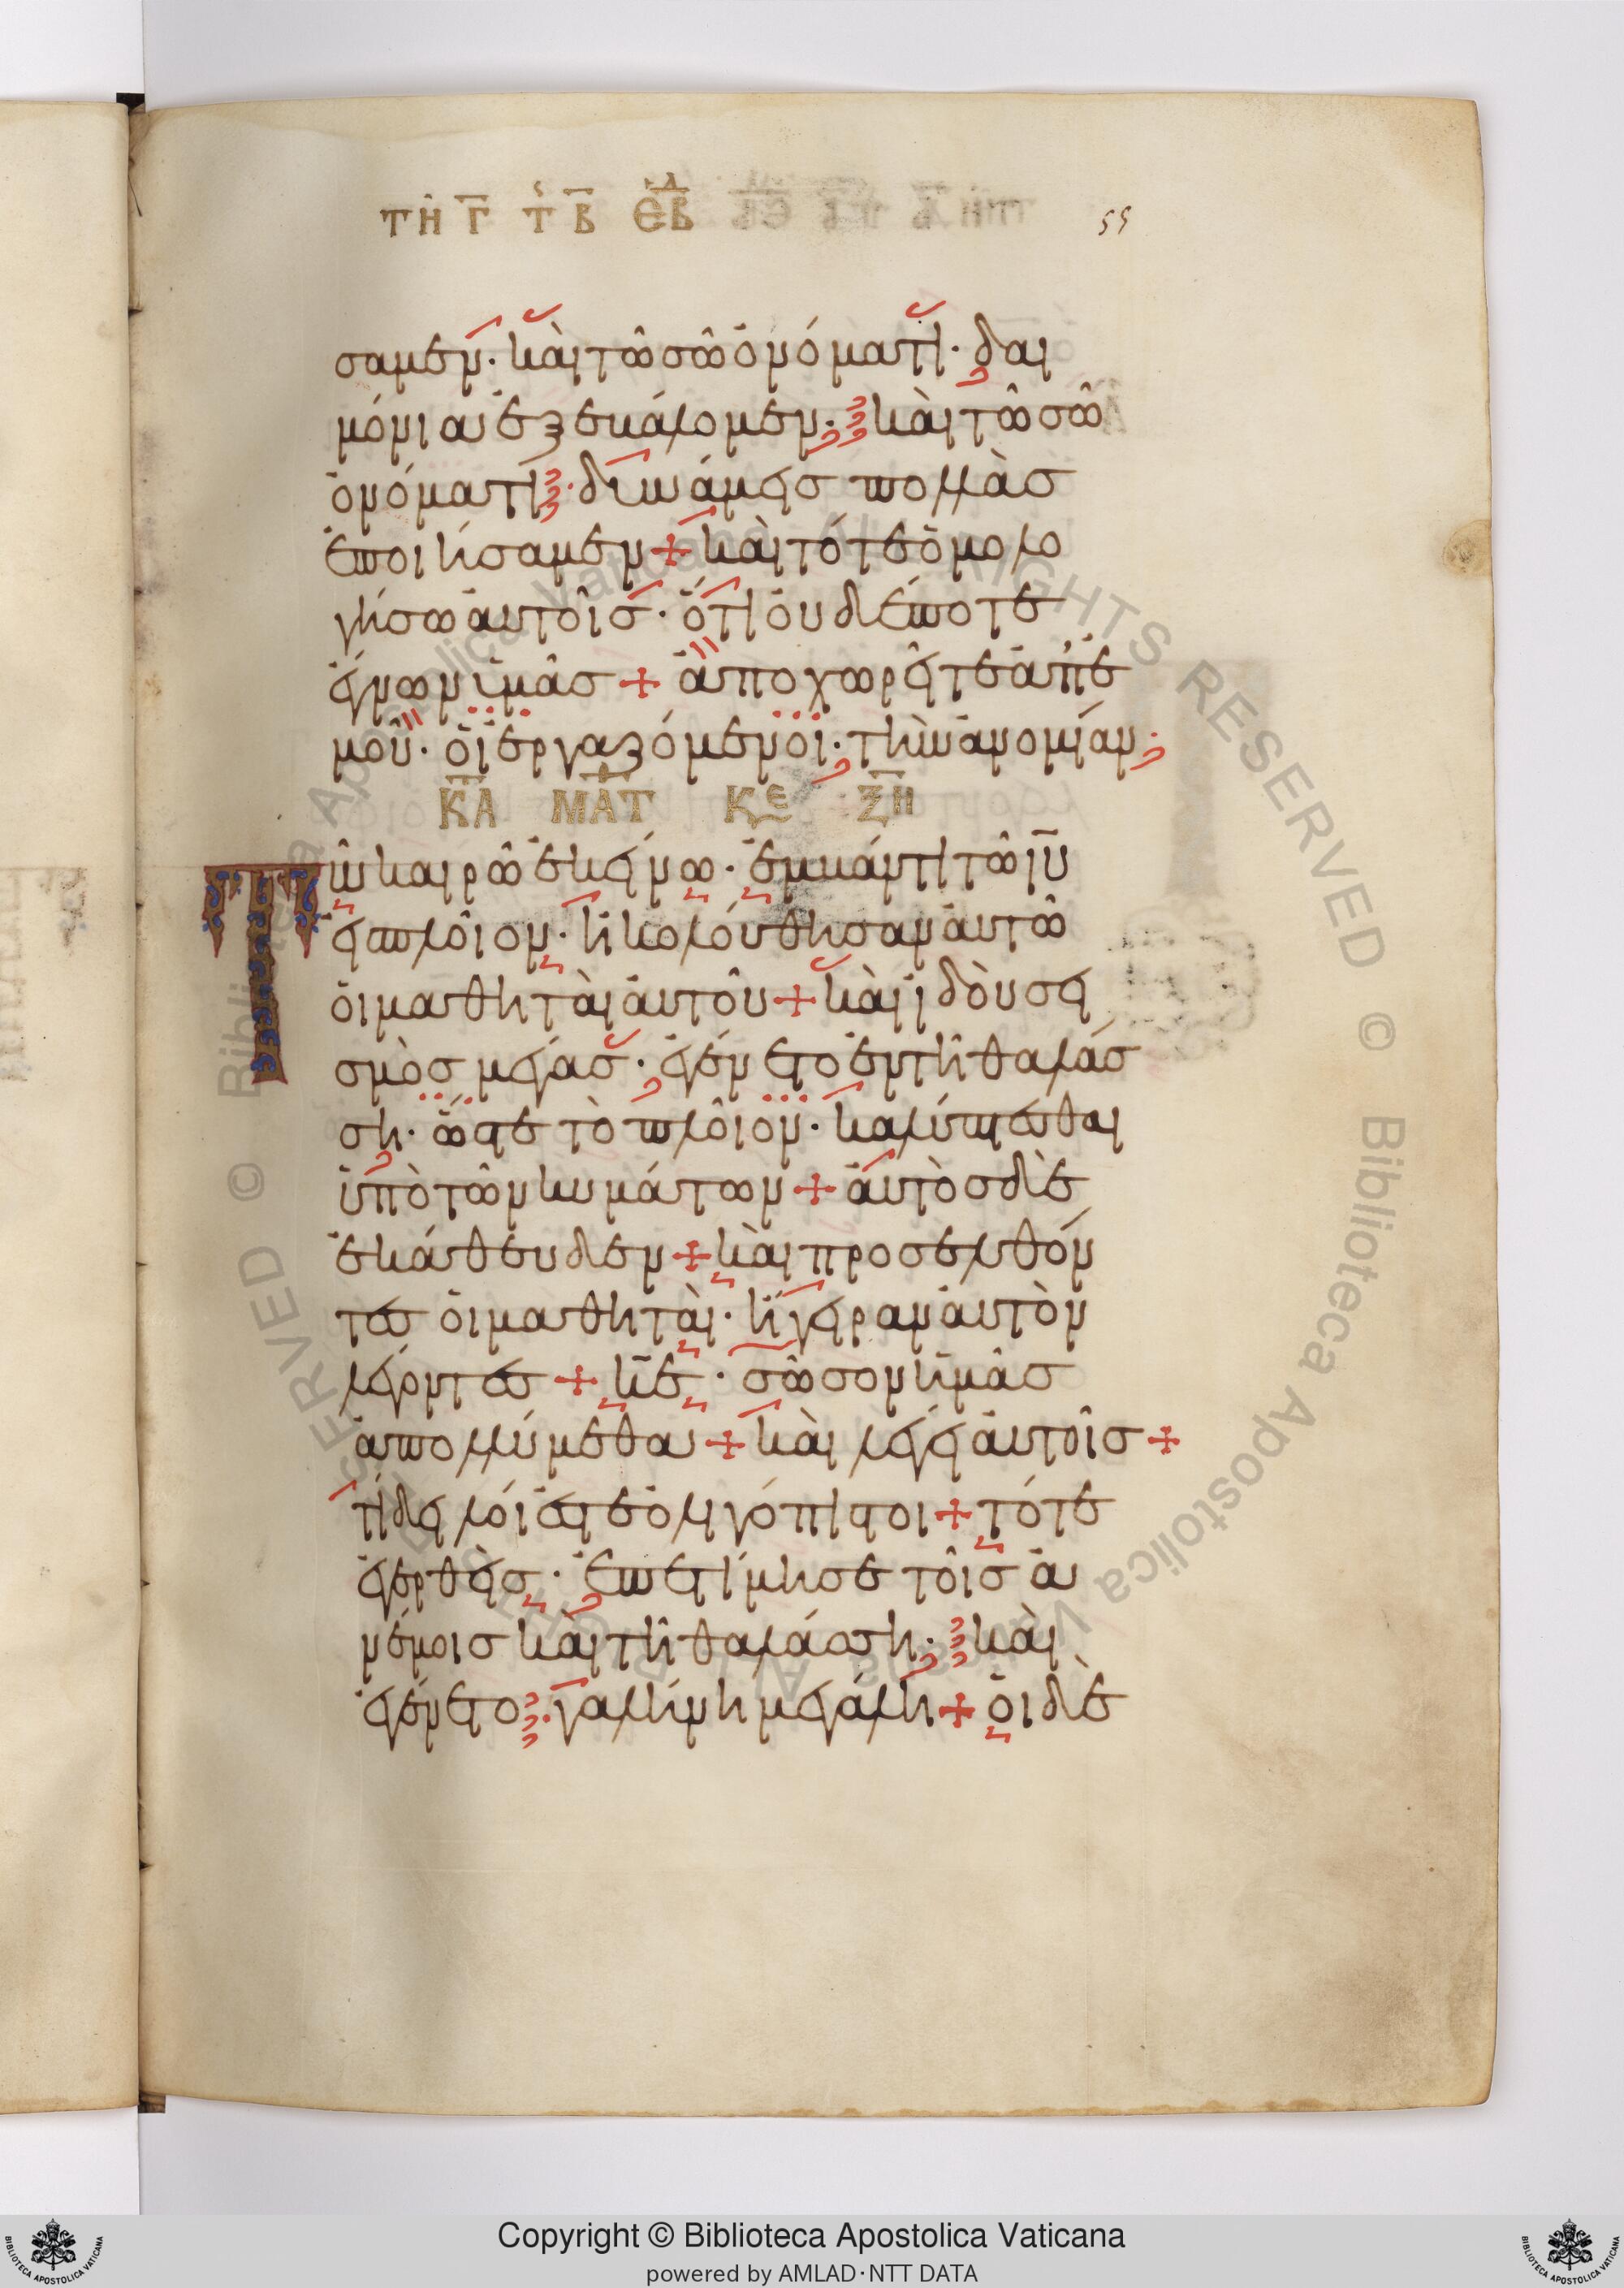 ΤΗ Γ Τ Β ΕΒΔ 55
σαμεν· καὶ τῶ σῶ ὀνόματι· δαι
μόνια ἐξεκάλομεν· καὶ τῶ σῶ
ὀνόματι· δυνάμεις πολλὰσ
ἐποιήσαμεν + καὶ τότε ὁμολο
γήσω αὐτοῖσ· ὅτι οὐδέποτε
ἔγνων ὑμᾶσ + ἀποχωρεῖτε ἀπ' ἐ
μοῦ· οἱ ἐργαζόμενοι· τὴν ἀνομίαν·
Κ ΜΑΤ ΚΕ ΞΗ
Τῶ καιρῶ ἐκείνω· ἐμβάντι τῶ ιυ
εἰσ πλοῖον· ἠκολούθησαν αὐτῶ
οἱ μαθηταὶ αὐτοῦ + καὶ ἰδοὺ σει
σμὸσ μέγασ· ἐγένετο ἐν τῆ θαλάσ
ση· ὥστε τὸ πλοῖον· καλύπτεσθαι
ὑπὸ τῶν κυμάτων + αὐτὸσ δὲ
ἐκάθευδεν + καὶ προσελθόν
τεσ οἱ μαθηταὶ· ἤγειραν αὐτὸν
λέγοντεσ + κε· σῶσον ἡμᾶσ
ἀπολλύμεθα + καὶ λέγει αὐτοῖσ +
τί δειλοί ἐστε ὀλιγόπιστοι + τότε
ἐγερθεὶσ· ἐπετίμησε τοῖσ ἀ
νέμοισ καὶ τῆ θαλάσση· καὶ
ἐγένετο· γαλήνη μεγάλη + οἱ δὲ
Copyright © Biblioteca Apostolica Vaticana
powered by AMLAD·NTT DATA